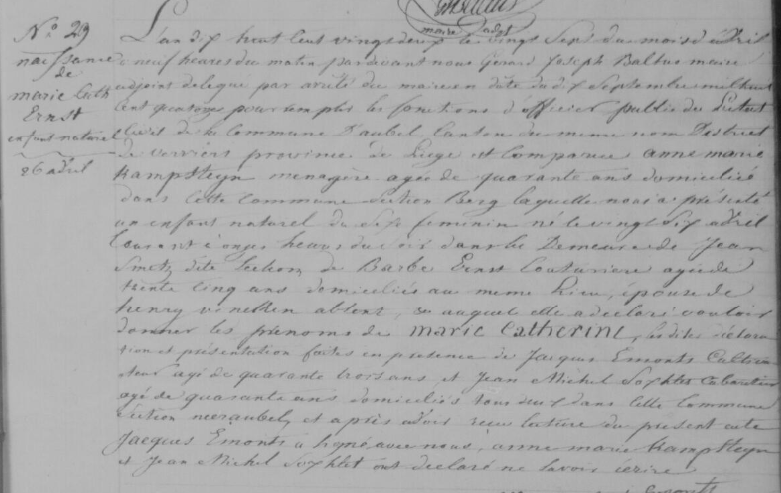 maire adjt
N.º 29
naissance
de
marie Cath
Ernst
enfant naturel
26 avril
L'an dix huit cent vingt deux le vingt sept du mois d'avril
à neuf heures du matin pardevant nous Gérard Joseph Baltus maire
adjoint délégué par arrêté du maire en date du dix Septembre mil huit
Cent quatorze pour remplir les fonctions d'officier public de l'état
Civil de la Commune d'aubel Canton du meme nom District
de verviers province de Liege est Comparue anne marie
Kampsteyn menagère agée de quarante ans domiciliée
dans cette Commune Section Berg laquelle nous a présenté
un enfant naturel du Sexe feminin né le vingt Six avril
Courant à onze heures du soir dans la Demeure de Jean
Smetz dite Section de Barbe Ernst Couturiere agée de
trente cinq ans domiciliée au meme lieu, épouse de
henry absent, auquel elle a déclaré vouloir
donner les prénoms de marie Catherine, lesdites déclara
tion et présentation faites en presence de Jacques Emonts Cultiva
teur agé de quarante trois ans et Jean Michel Sophlet Cabaretier
agé de quarante ans domiciliés tous deux dans cette Commune
Section neeraubel, et après avoir reçu lecture du present acte
Jacques Emonts à signé avec nous, anne marie Kampsteyn
et Jean Michel Sophlet ont declaré ne savoir écrire